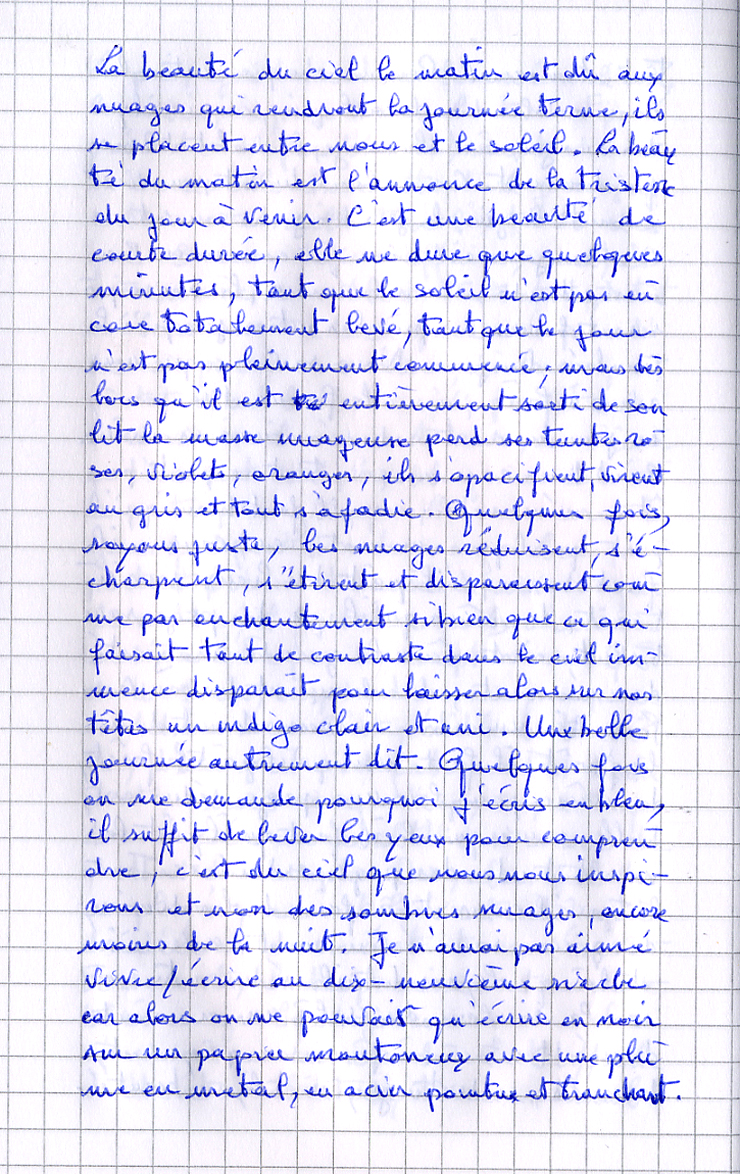 La beauté du ciel le matin est dû aux
nuages qui rendront la journée terne, ils
se placent entre nous et le soleil. La beau
té du matin est l'annonce de la tristesse
du jour à venir. C'est une beauté de
courte durée, elle ne dure que quelques
minutes, tant que le soleil n'est pas en
core totalement levé, tant que le jour
n'est pas pleinement commencé; mais dès
lors qu'il est entièrement sorti de son
lit la masse nuageuse perd ses teintes ro
ses, violets, oranges, ils s'opacifient, virent
au gris et tout s'afadie. Quelques fois,
soyons juste, les nuages réduisent, s'é-
charpent, s'étirent et disparaissent com
me par enchantement si bien que ce qui
faisait tant de contraste dans le ciel im-
mence disparaît pour laisser alors sur nos
têtes un indigo clair et uni. Une belle
journée autrement dit. Quelques fois
on me demande pourquoi j'écris en bleu,
il suffit de lever les yeux pour compren
dre, c'est du ciel que nous nous inspi-
rons et non des sombres nuages, encore
moins de la nuit. Je n'aurai pas aimé
vivre/écrire au dix-neuvième siècle
car alors on ne pouvait qu'écrire en noir
sur un papier moutoneux avec une plu
me en metal, en acier pointue et tranchant.